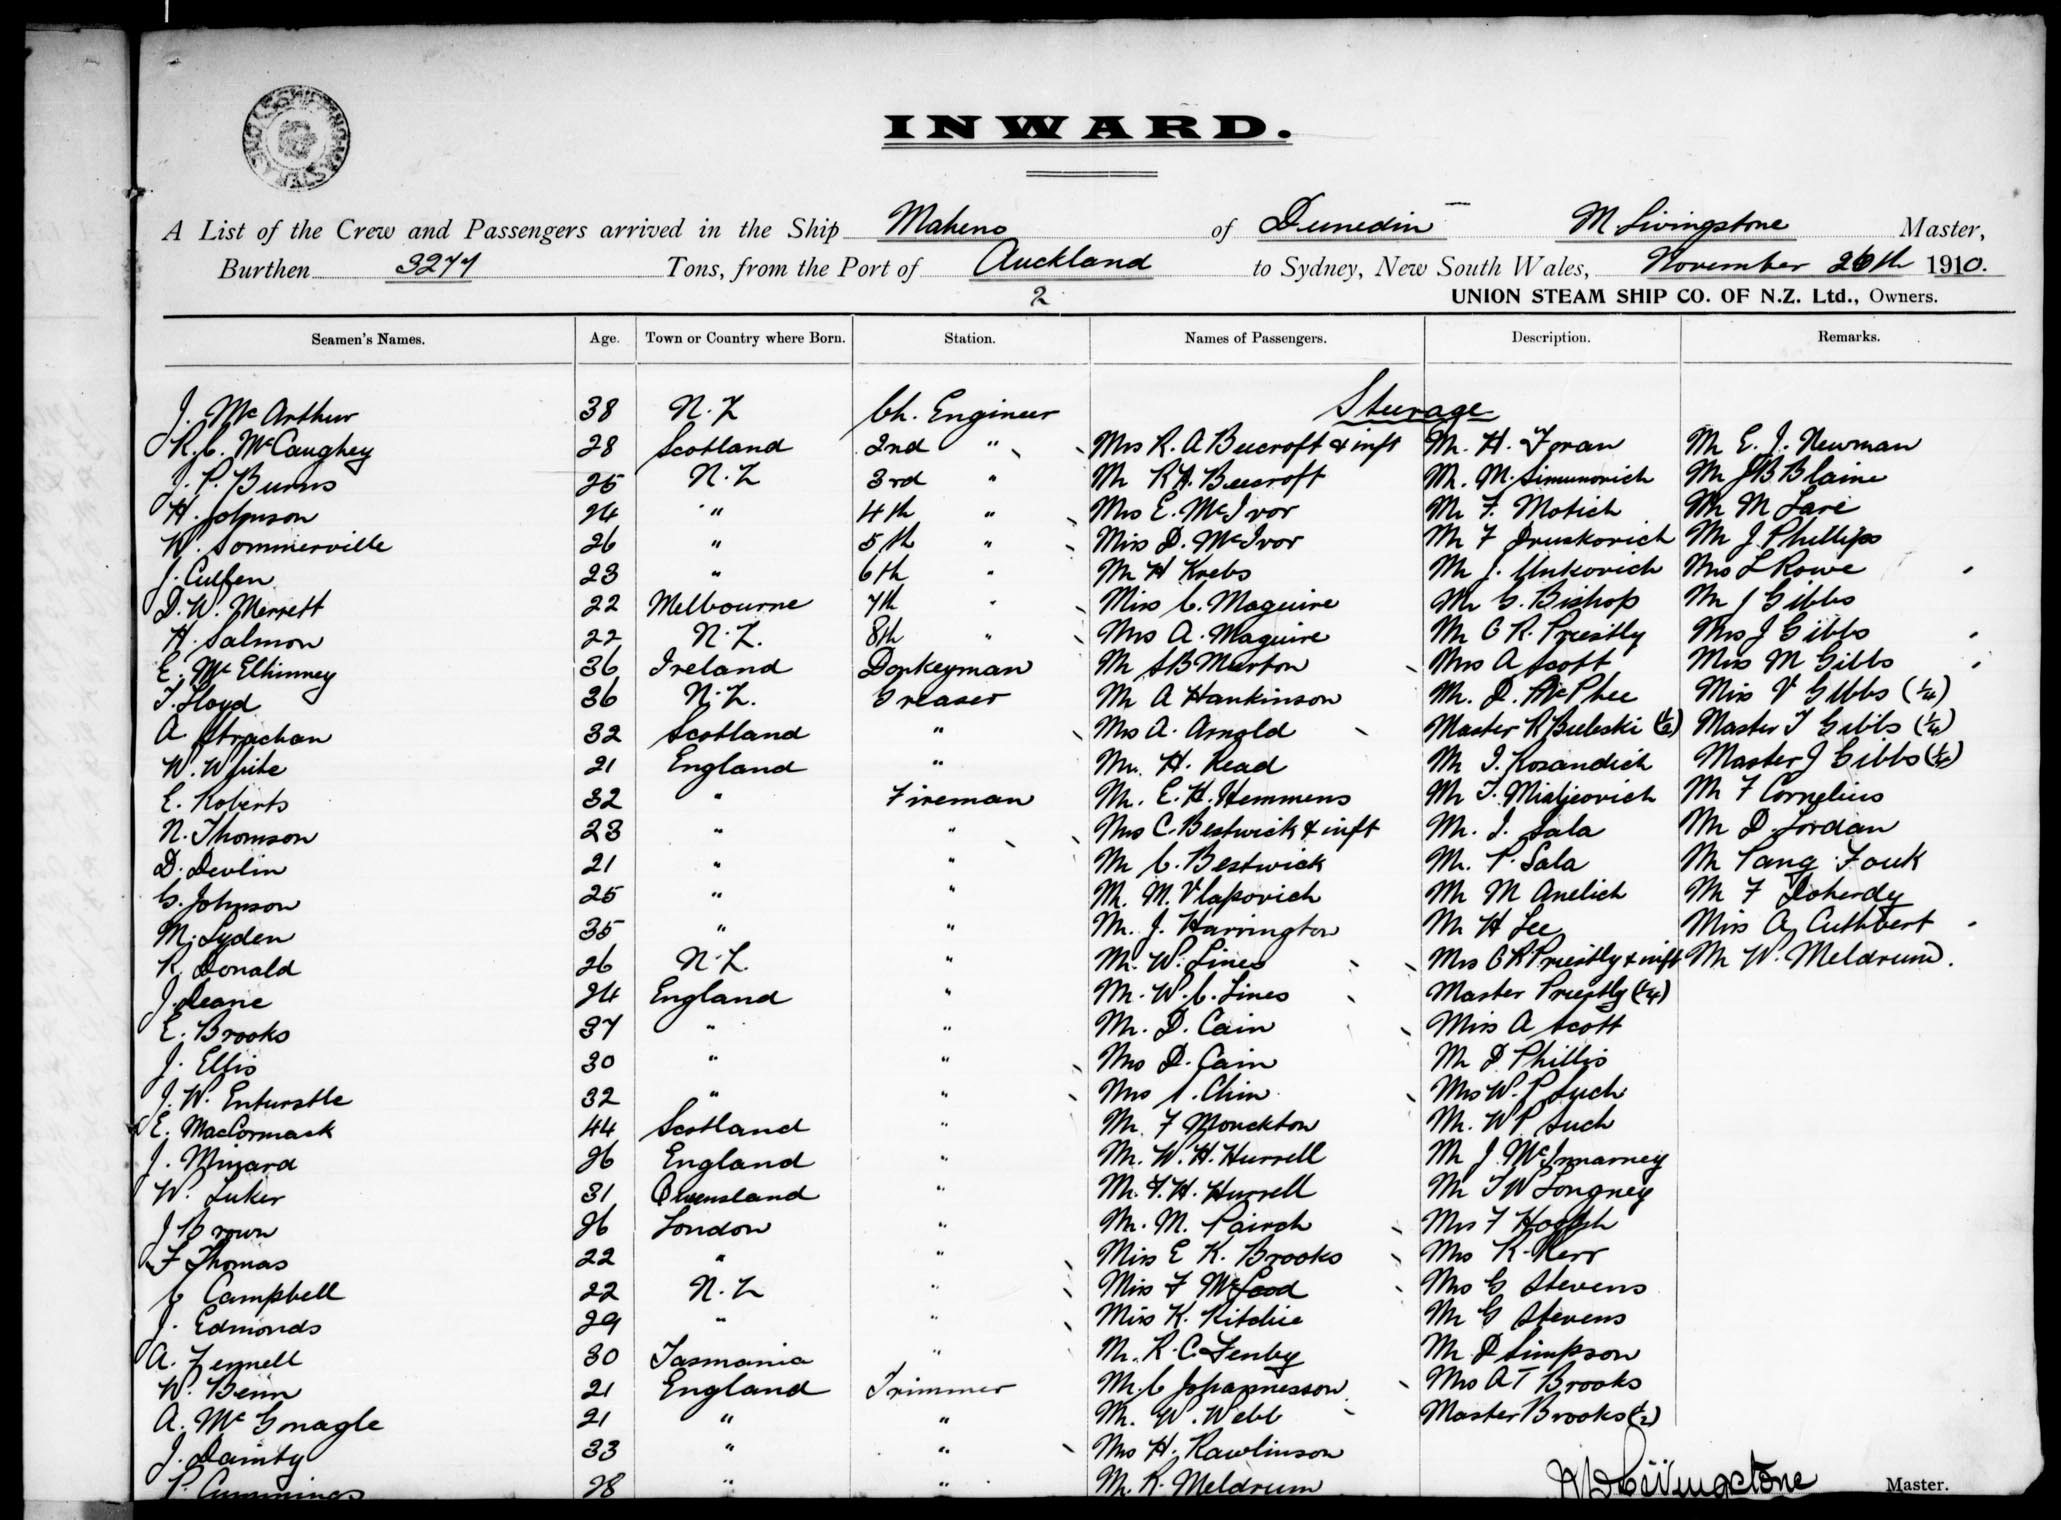 INWARD.
A List of the Crew and Passengers arrived in the Ship Maheno of Dunedin M. Livingstone Master,
Burthen 3277 Tons, from the Port of Auckland to Sydney, New South Wales, November 26th 1910.
2
UNION STEAM SHIP CO. OF N.Z. Ltd., Owners.
Seamen's Names. Age. Town or Country where Born. Station. Names of Passengers. Description. Remarks.
J. McArthur 38 N.Z Ch. Engineer Steerage
R.C. McCaughey 28 Scotland 2nd " Mrs R. A Beecroft & inft Mr. H. Foran Mr E. J. Newman
J. P. Burns 25 N.Z 3rd " Mr R.A. Beecroft Mr. M. Simunovich Mr J B Blaine
H. Johnson 24 " 4th " Mrs E. McIvor Mr F. Motich Mr M Lare
W. Sommerville 26 " 5th " Miss D. McIvor Mr F Druskovich Mr J Phillips
J. Cullen 23 " 6th " Mr H Krebs Mr J. Unkovich Mrs L Rowe
D. W. Merrett 22 Melbourne 7th " Miss C. Maguire Mr G. Bishop Mr J Gibbs
H. Salmon 22 N.Z. 8th " Mrs A. Maguire Mr C R. Priestly Mrs J Gibbs
E. McElhinney 36 Ireland Donkeyman Mr S B Murton Mrs A Scott Miss M Gibbs
T. Lloyd 36 N.Z. Greaser Mr A Hankinson Mr. D. McPhee Miss V Gibbs (1/4)
A Strachan 32 Scotland " Mrs A. Arnold Master R Bieleski (1/2) Master T Gibbs (1/4)
W. White 21 England " Mr. H. Read Mr I. Rosandich Master J Gibbs (1/4)
E. Roberts 32 " Fireman Mr. E. H. Hemmens Mr T. Mialjevich Mr F Cornelius
N. Thomson 23 " " Mrs C. Bestwick & inft Mr. I. Sala Mr D. Jordan
D. Devlin 21 " " Mr C. Bestwick Mr. P. Sala Mr Pang Fouk
G. Johnson 25 " " Mr. M. Vlapovich Mr M Anelich Mr F Doherdy
M. Lyden 35 " " Mr. J. Harrington Mr H Lee Miss A Cuthbert
R. Donald 26 N.Z. " Mr. W. Lines Mrs C R Priestly & inft Mr W. Meldrum.
J. Deane 24 England " Mr. W. C. Lines Master Priestly (1/4)
E. Brooks 37 " " Mr. D. Cain Miss A Scott
J. Ellis 30 " " Mrs D. Cain Mr D Phillis
J. W. Enturstle 32 " " Mrs Chin Mrs W. P Such
E. MacCormack 44 Scotland " Mr. F Monckton Mr. W P Such
J. Minard 26 England " Mr. W. H. Hurrell Mr J. McInnarney
W. Luker 31 Queensland " Mr. F. H. Hurrell Mr T W Longney
J Brown 26 London " Mr. M. Pairch Mrs F
F Thomas 22 " " Miss E K. Brooks Mrs K. Kerr
C Campbell 22 N.Z " Miss F McLeod Mrs G Stevens
J. Edmonds 29 " " Miss K. Ritchie Mr G Stevens
A. Fennell 30 Tasmania " Mr. R. C. Fenby Mr. D Simpson
W. Benn 21 England Trimmer Mr C Johannesson Mrs A T Brooks
A. McGonagle 21 " " Mr. W. Webb Master Brooks (1/2)
J. Dainty 33 " " Mrs H. Rawlinson
P. Cummings 28 " " Mr. R. Meldrum
Livingstone Master.